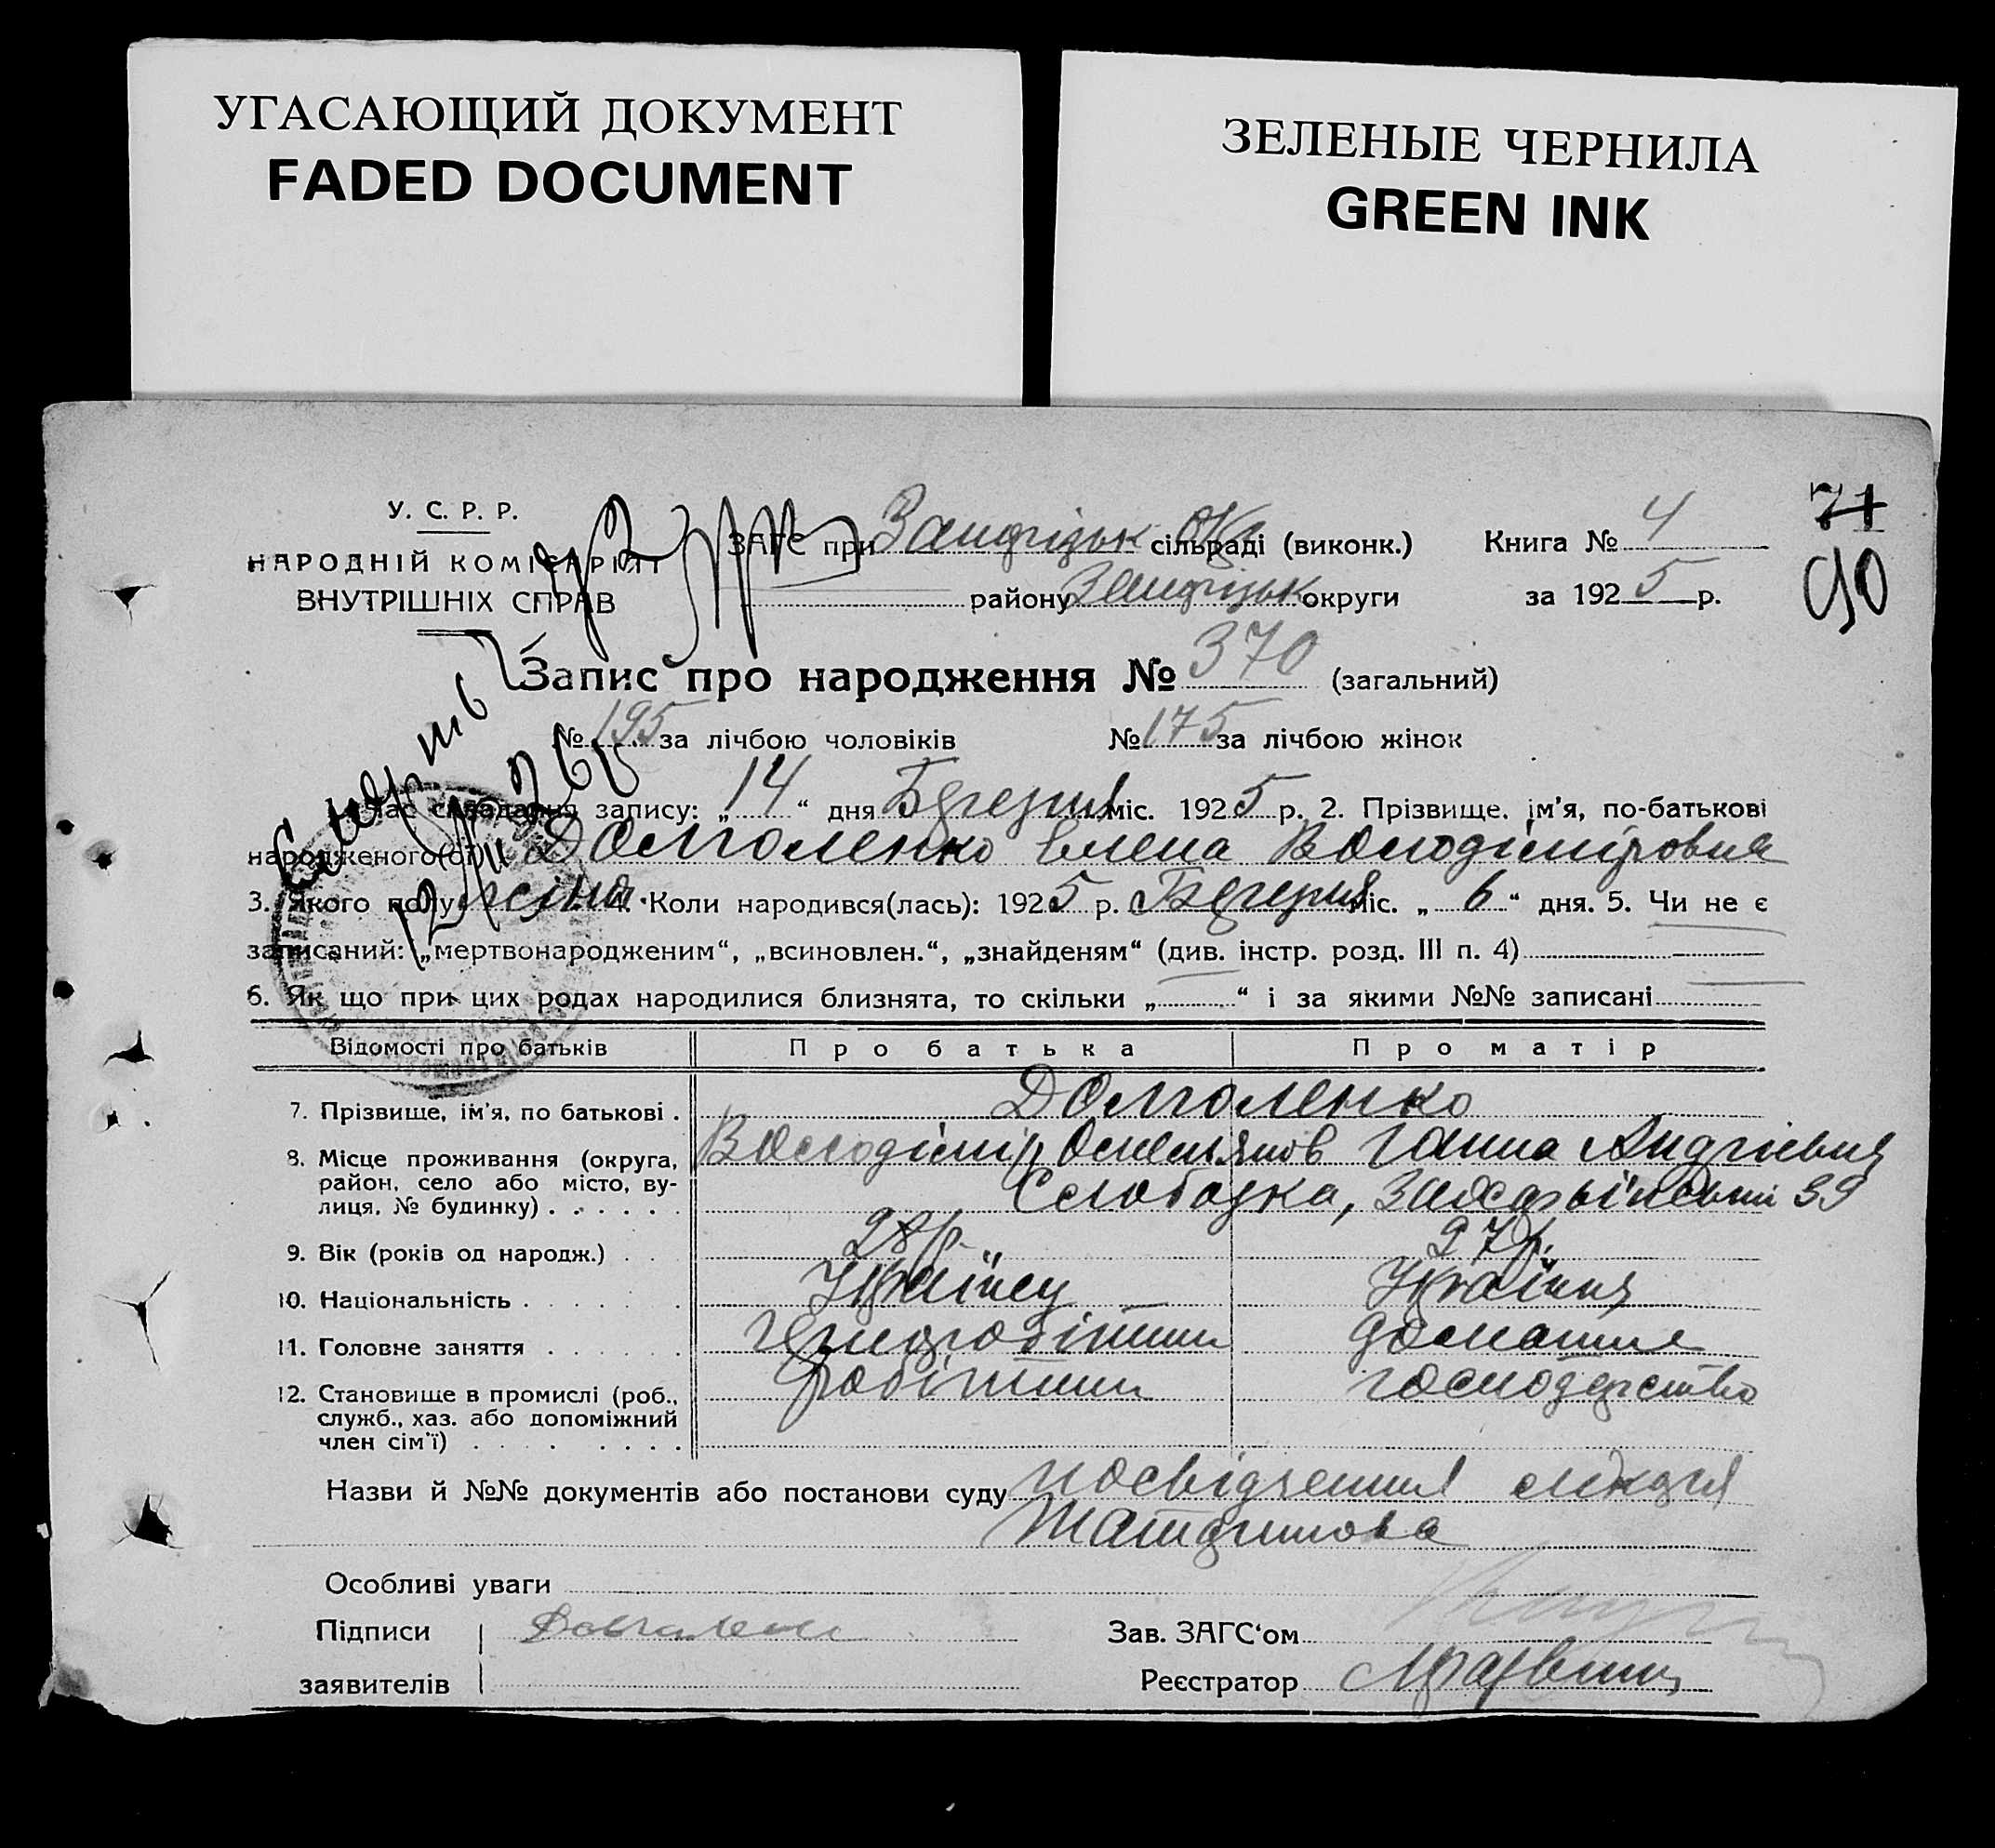 УГАСАЮЩИЙ ДОКУМЕНТ
FADED DOCUMENT
ЗЕЛЕНЫЕ ЧЕРНИЛА
GREEN INK
У. С. Р. Р.
НАРОДНІЙ КОМІСАРІЯТ
ВНУТРІШНІХ СПРАВ
ЗАГС при сільраді (виконк.)
району округи
Книга № 4
за 1925 р.
71
90
Запис про народження № 370 (загальний)
№ 195 за лічбою чоловіків № 175 за лічбою жінок
Смерть
Час складання запису: „ 14 “ дня Березня міс. 1925 р. 2. Прізвище, ім'я, по-батькові
народженого(ої) Елена Володіміровна
3. Якого полу жіноч. 4. Коли народився(лась): 1925 р. Березня міс. „ 6 “ дня. 5. Чи не є
записаний: „мертвонародженим“, „всиновлен.“, „знайденям“ (див. інстр. розд. III п. 4)
6. Як що при цих родах народилися близнята, то скільки „ “ і за якими №№ записані
Відомості про батьків Про батька Про матір
7. Прізвище, ім'я, по батькові .
8. Місце проживання (округа, район, село або місто, вулиця, № будинку) . . . . . .
Володімір Ганна Андріевна
Слободка, 39
9. Вік (років од народж.) . . 28 р. 27 р.
10. Національність . . . . . . . Українец Українка
11. Головне заняття . . . . . . черноробітник домашне
12. Становище в промислі (роб., служб., хаз. або допоміжний член сім'ї) . . . . . . . робітник господарство
Назви й №№ документів або постанови суду посвідчення лікаря
Особливі уваги
Підписи
заявителів
Зав. ЗАГС'ом
Реєстратор